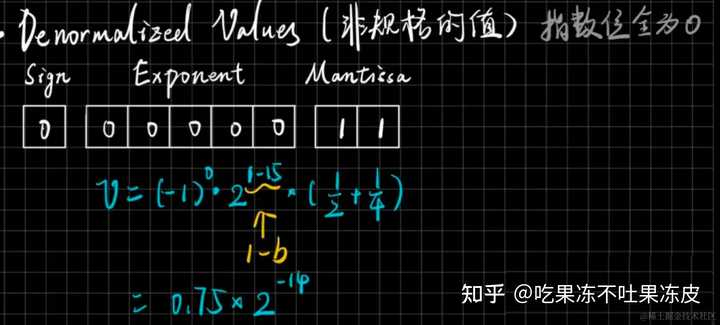 · Denormalized Values (非规格的值) 指数位全为0
Sign Exponent Mantissa
0 0 0 0 0 0 1 1
V = (-1)⁰ · 2¹⁻¹⁵ × (1/2 + 1/4)
↑
1-b
= 0.75 × 2⁻¹⁴
知乎 @吃果冻不吐果冻皮
@稀土掘金技术社区